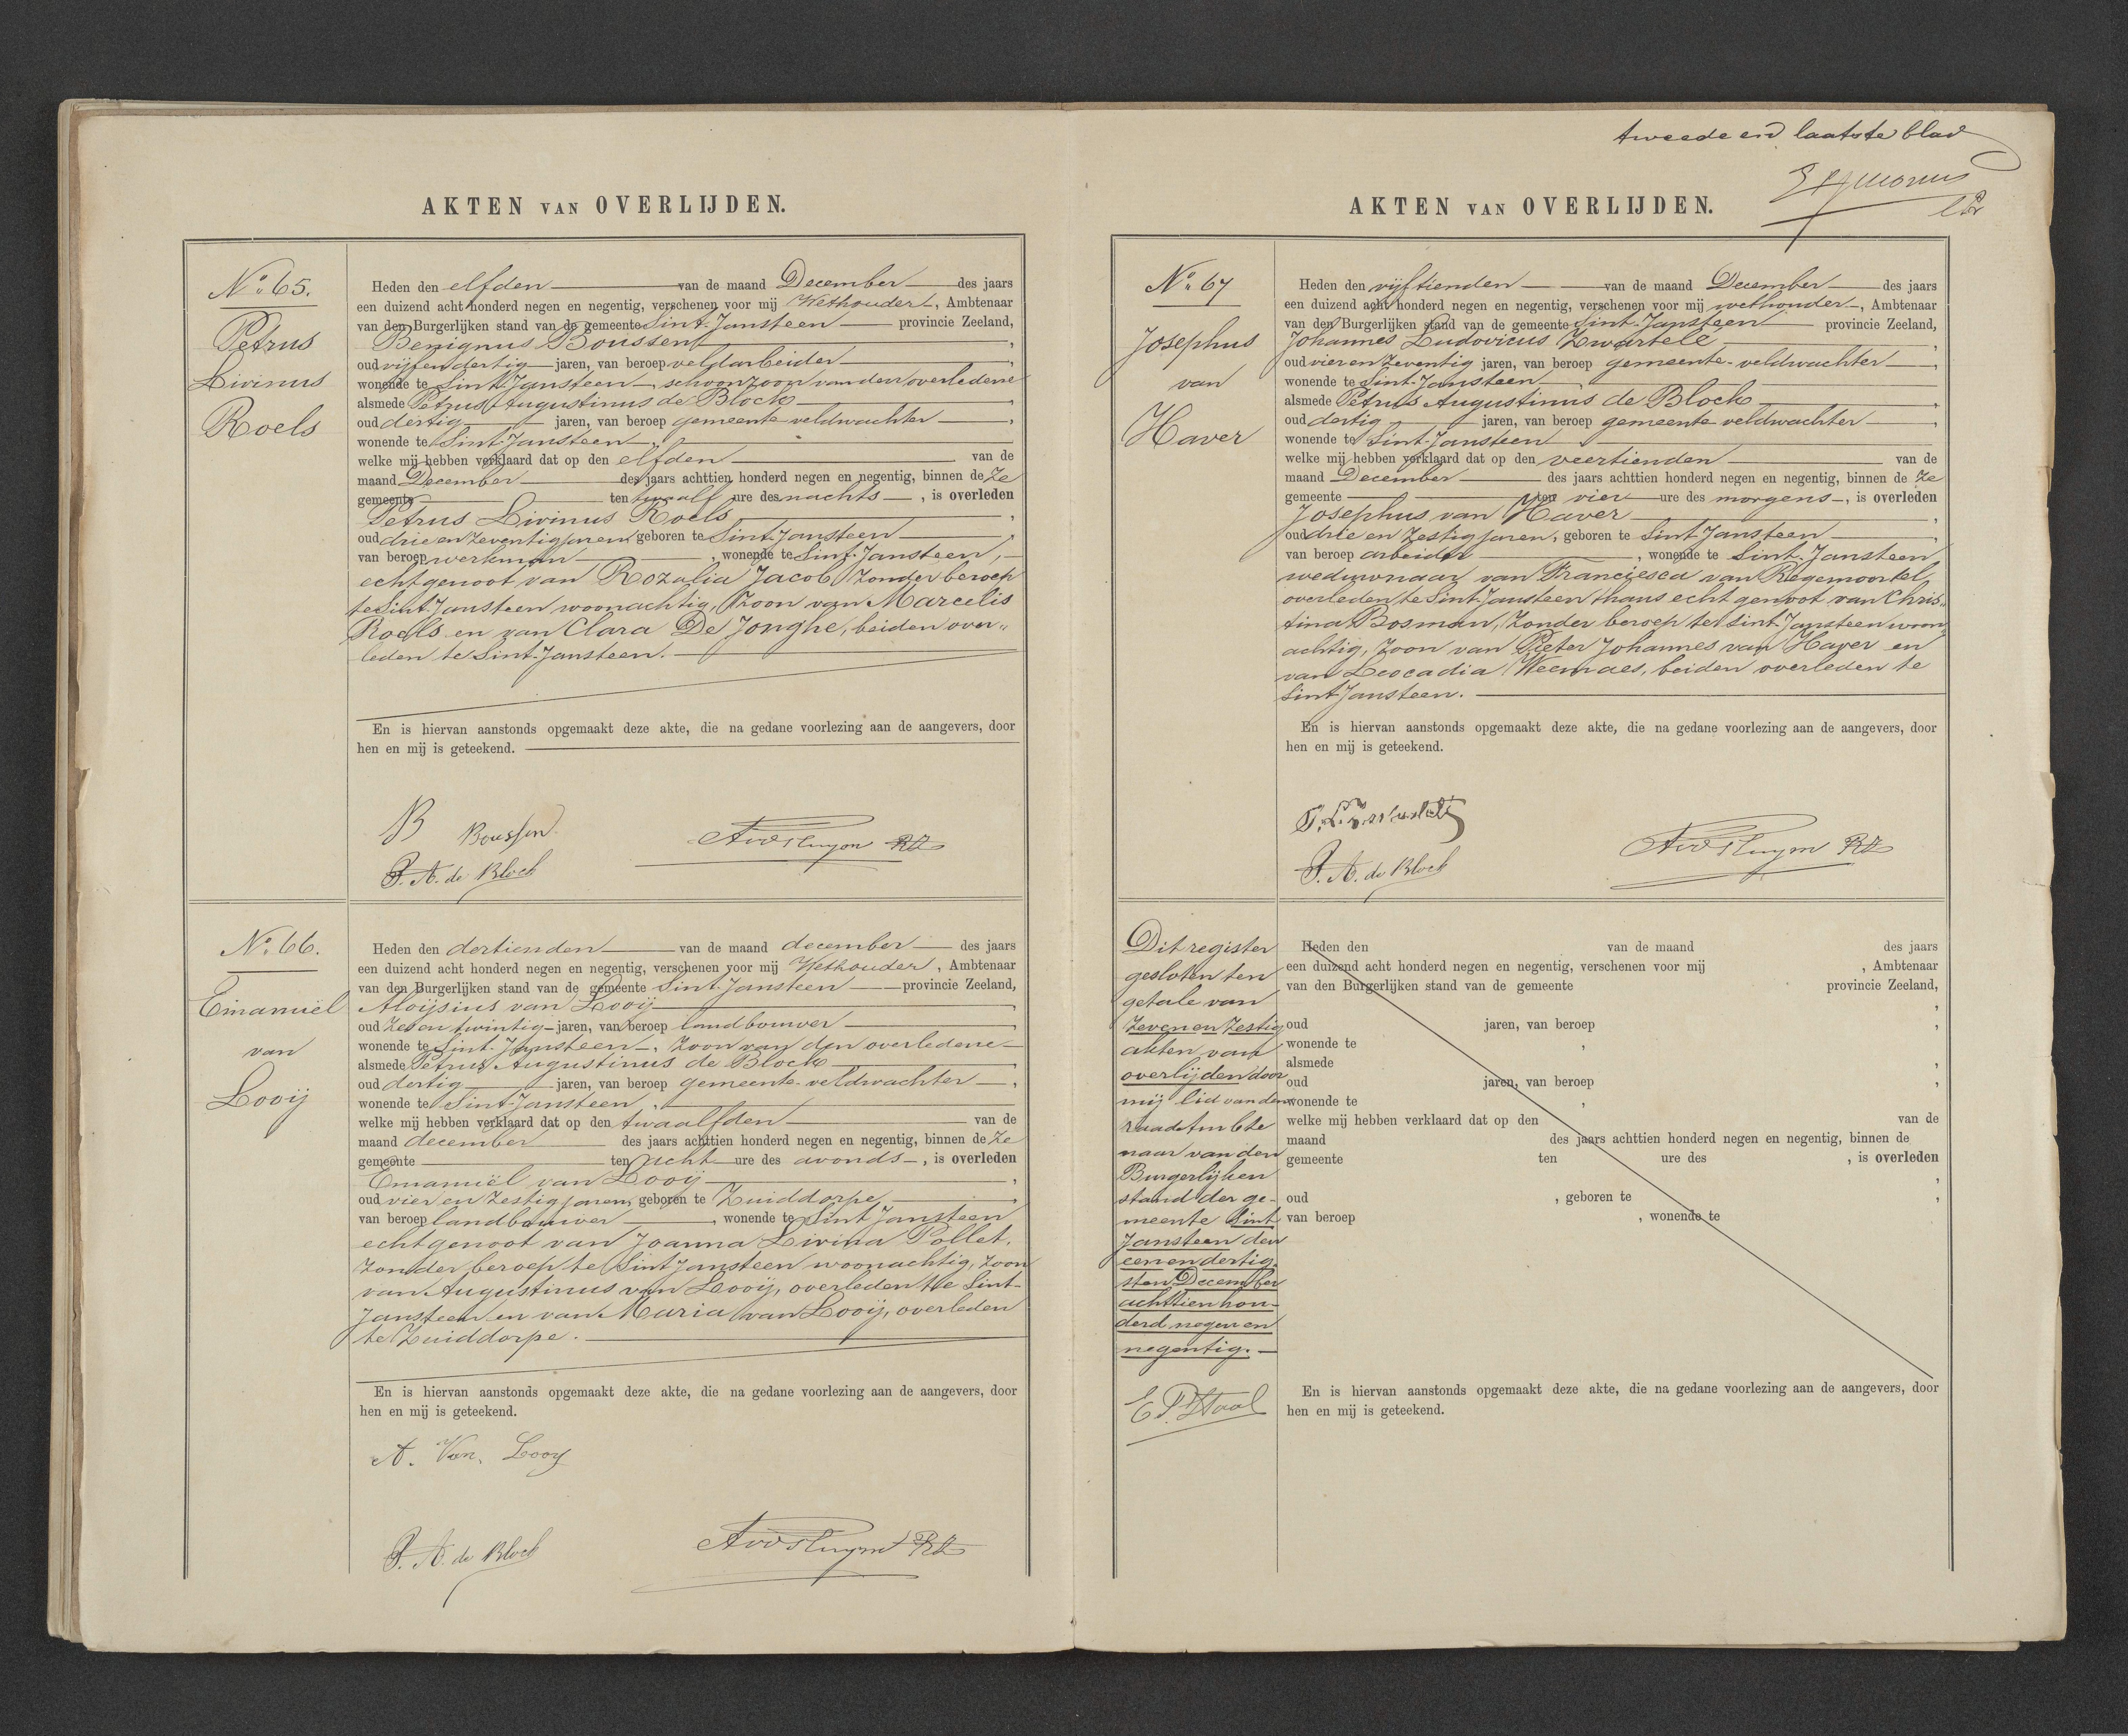 AKTEN VAN OVERLIJDEN.
No. 65.
Petrus
Livinus
Roels
Heden den elfden van de maand December des jaars
een duizend acht honderd negen en negentig, verschenen voor mij Wethouder, Ambtenaar
van den Burgerlijken stand van de gemeente Sint-Jansteen provincie Zeeland,
Benignus Boussen,
oud vijfendertig jaren, van beroep veldarbeider,
wonende te Sint-Jansteen, schoonzoon van den overledene
alsmede Petrus Augustinus de Block,
oud dertig jaren, van beroep gemeente veldwachter,
wonende te Sint Jansteen,
welke mij hebben verklaard dat op den elfden van de
maand December des jaars achttien honderd negen en negentig, binnen deze
gemeente ten twaalf ure des nachts, is overleden
Petrus Livinus Roels,
oud drie en zeventig jaren, geboren te Sint-Jansteen,
van beroep werkman, wonende te Sint-Jansteen,
echtgenoot van Rozalia Jacob, zonder beroep
te Sint-Jansteen woonachtig, zoon van Marcelis
Roels en van Clara De Jonghe, beiden over„
leden te Sint-Jansteen.
En is hiervan aanstonds opgemaakt deze akte, die na gedane voorlezing aan de aangevers, door
hen en mij is geteekend.
B Boussen
P. A. de Block
No. 66.
Emanuël
van
Looij
Heden den dertienden van de maand december des jaars
een duizend acht honderd negen en negentig, verschenen voor mij Wethouder, Ambtenaar
van den Burgerlijken stand van de gemeente Sint-Jansteen provincie Zeeland,
Aloijsius van Looij,
oud zes en twintig jaren, van beroep landbouwer,
wonende te Sint-Jansteen, zoon van den overledene
alsmede Petrus Augustinus de Block,
oud dertig jaren, van beroep gemeente-veldwachter,
wonende te Sint-Jansteen,
welke mij hebben verklaard dat op den twaalfden van de
maand december des jaars achttien honderd negen en negentig, binnen deze
gemeente ten acht ure des avonds, is overleden
Emanuël van Looij,
oud vier en zestig jaren, geboren te Zuiddorpe,
van beroep landbouwer, wonende te Sint Jansteen
echtgenoot van Joanna Livina Pollet,
zonder beroep te Sint Jansteen woonachtig, zoon
van Augustinus van Looij, overleden te Sint-
Jansteen en van Maria van Looij, overleden
te Zuiddorpe.
En is hiervan aanstonds opgemaakt deze akte, die na gedane voorlezing aan de aangevers, door
hen en mij is geteekend.
A. Van. Looy
P. A. de Block
tweede en laatste blad
AKTEN VAN OVERLIJDEN.
No. 67
Josephus
van
Haver
Heden den vijftienden van de maand December des jaars
een duizend acht honderd negen en negentig, verschenen voor mij wethouder, Ambtenaar
van den Burgerlijken stand van de gemeente Sint-Jansteen provincie Zeeland,
Johannes Ludovicus Zwartele,
oud vier en zeventig jaren, van beroep gemeente-veldwachter,
wonende te Sint-Jansteen
alsmede Petrus Augustinus de Block,
oud dertig jaren, van beroep gemeente veldwachter,
wonende te Sint-Jansteen,
welke mij hebben verklaard dat op den veertienden van de
maand December des jaars achttien honderd negen en negentig, binnen deze
gemeente ten vier ure des morgens, is overleden
Josephus van Haver,
oud drie en zestig jaren, geboren te Sint Jansteen,
van beroep arbeider, wonende te Sint-Jansteen
weduwnaar van Franciesca van Regemoortel,
overleden te Sint-Jansteen thans echtgenoot van Chris„
tina Bosman, zonder beroep te Sint Jansteen woon
achtig, zoon van Pieter Johannes van Haver en
van Leocadia Weemaes, beiden overleden te
Sint Jansteen.
En is hiervan aanstonds opgemaakt deze akte, die na gedane voorlezing aan de aangevers, door
hen en mij is geteekend.
P. A. de Block
Dit register
gesloten ten
getale van
zeven en zestig
akten van
overlijden door
mij lid van den
raad Ambte
naar van den
Burgerlijken
stand der ge-
meente Sint
Jansteen den
een en dertig
sten December
achttien hon-
derd negen en
negentig.
E P. Staal
Heden den van de maand des jaars
een duizend acht honderd negen en negentig, verschenen voor mij , Ambtenaar
van den Burgerlijken stand van de gemeente provincie Zeeland,
,
oud jaren, van beroep ,
wonende te ,
alsmede ,
oud jaren, van beroep ,
wonende te ,
welke mij hebben verklaard dat op den van de
maand des jaars achttien honderd negen en negentig, binnen de
gemeente ten ure des , is overleden
,
oud , geboren te ,
van beroep , wonende te
En is hiervan aanstonds opgemaakt deze akte, die na gedane voorlezing aan de aangevers, door
hen en mij is geteekend.